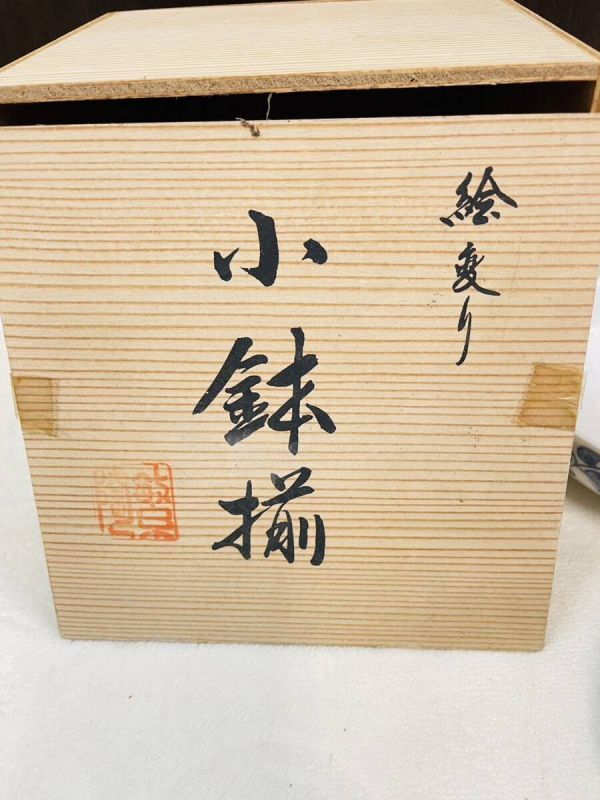 絵変り
小鉢揃